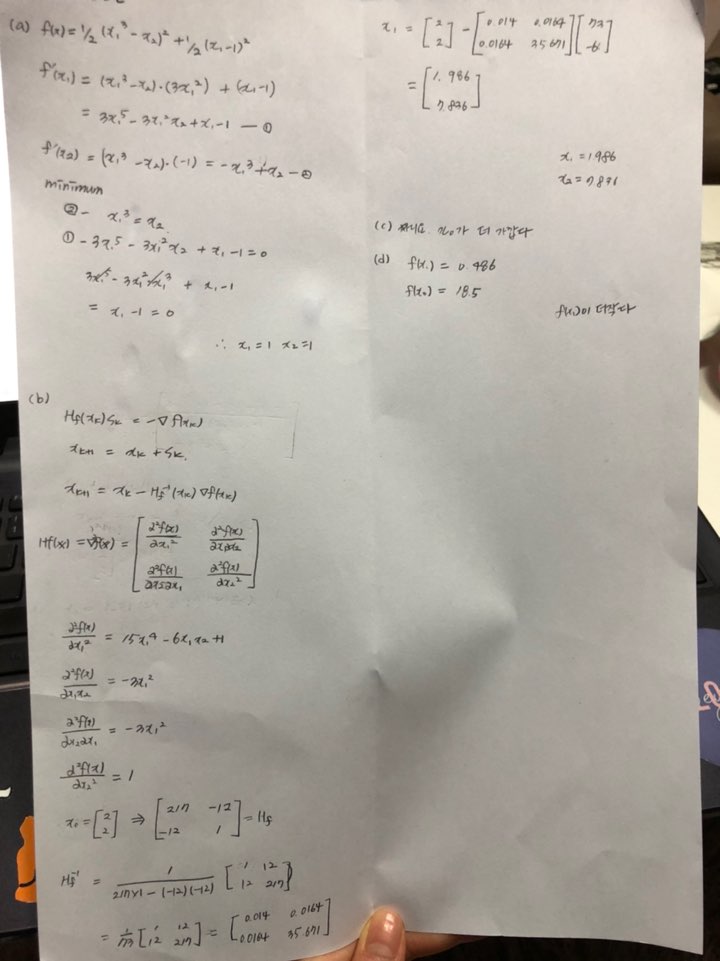 (a) f(x) = 1/2 (x₁³ - x₂)² + 1/2 (x₁-1)²
f'(x₁) = (x₁³-x₂)·(3x₁²) + (x₁-1)
= 3x₁⁵ - 3x₁²x₂ + x₁-1 — ①
f'(x₂) = (x₁³ - x₂)·(-1) = -x₁³+x₂ — ②
minimum
② - x₁³ = x₂
① - 3x₁⁵ - 3x₁²x₂ + x₁ -1 = 0
3x₁⁵ - 3x₁²·x₁³ + x₁-1
= x₁ -1 = 0
∴ x₁ = 1 x₂ = 1
(b)
Hf(xk)Sk = -∇f(xk)
xk+1 = xk + Sk.
xk+1 = xk - Hf⁻¹(xk)∇f(xk)
Hf(x) = ∇²f(x) = [ ∂²f(x)/∂x₁² ∂²f(x)/∂x₁∂x₂
∂²f(x)/∂x₂∂x₁ ∂²f(x)/∂x₂² ]
∂²f(x)/∂x₁² = 15x₁⁴ - 6x₁x₂ +1
∂²f(x)/∂x₁x₂ = -3x₁²
∂²f(x)/∂x₂∂x₁ = -3x₁²
∂²f(x)/∂x₂² = 1
x₀ = [2 2] ⇒ [217 -12
-12 1] = Hf
Hf⁻¹ = 1/(217×1 - (-12)(-12)) [1 12
12 217]
= 1/73 [1 12
12 217] = [0.014 0.0164
0.0164 35.671]
x₁ = [2 2] - [0.014 0.0164
0.0164 35.671] [73 -6]
= [1.986
7.836]
x₁ = 1.986
x₂ = 7.871
(c) 아니요. x₀가 더 가깝다
(d) f(x₁) = 0.486
f(x₀) = 18.5
f(x₁)이 더작다